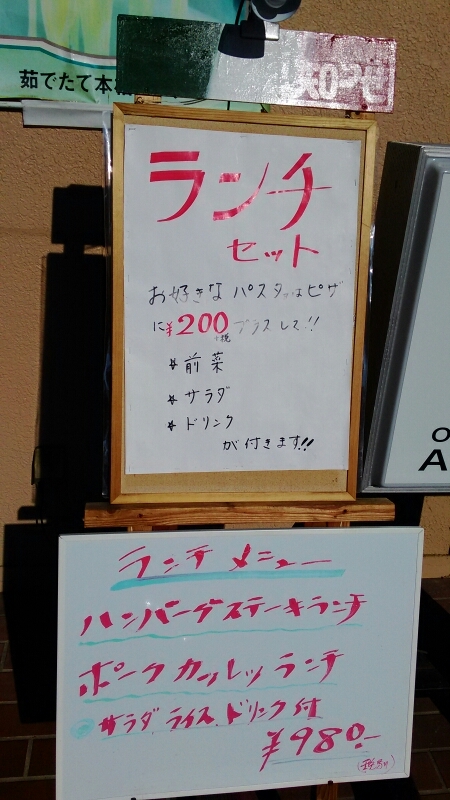 茹でたて本
ランチ
セット
お好きなパスタ又はピザ
に¥200プラスして!!
+税
*前菜
*サラダ
*ドリンク
が付きます!!
ランチメニュー
ハンバーグステーキランチ
ポークカツレツランチ
サラダ ライス ドリンク付
¥980.-
(税別)
O
A